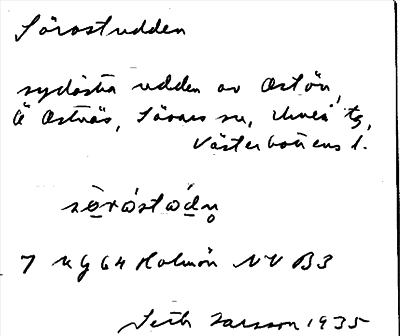 Sörostudden
sydöstra udden av Ostön,
Å Ostnäs, Sävars sn, Umeå tg,
Västerbottens l.
7 Kg 64 Holmön NV B3
Seth Larsson 1935